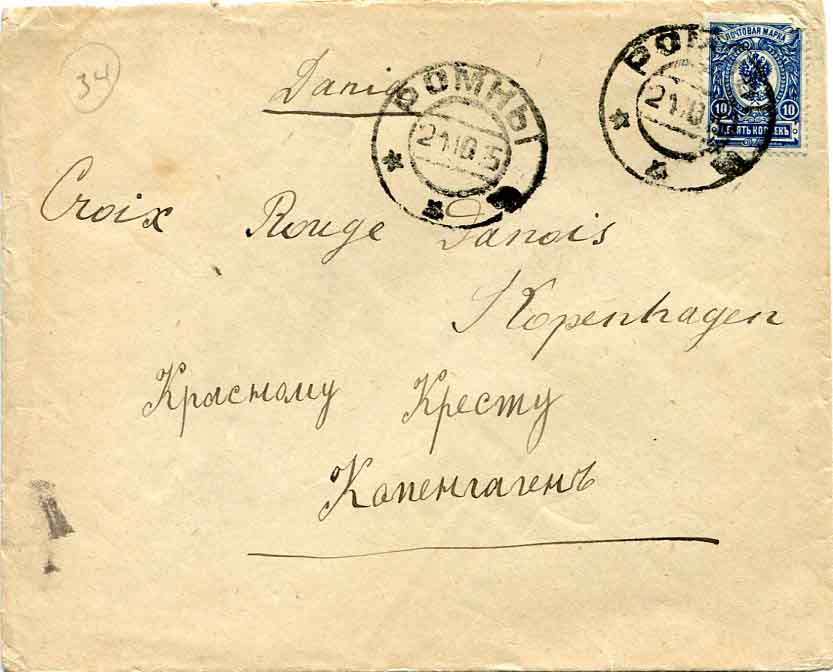 34
Dania
РОМНЫ
21.10.15
РОМ
21.10
ПОЧТОВАЯ МАРКА
10 10
ДЕСЯТЬ КОПѢЕКЪ
Croix Rouge Danois
Kopenhagen
Красному Кресту
Копенгагенъ